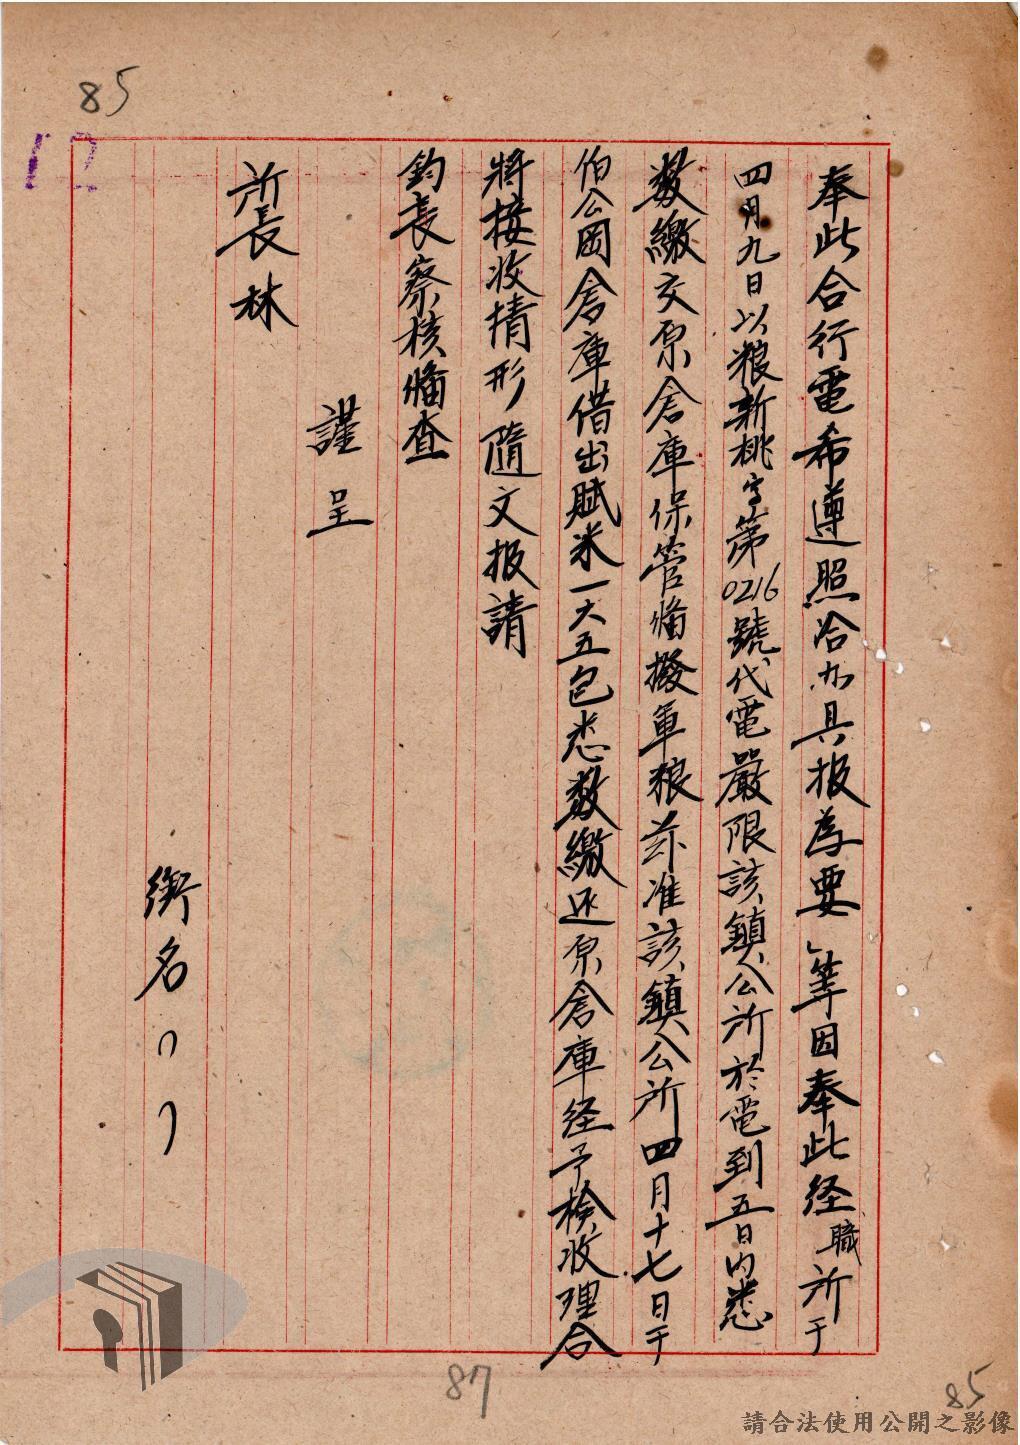 85
12
奉此合行電希遵照洽办具报為要」等因奉此経職所于
四月九日以粮新桃字第0216號代電嚴限該鎮公所於電到五日内悉
数繳交原倉庫保管備撥軍粮茲准該鎮公所四月十七日于
伯公岡倉庫借出賦米一六五包悉数繳还原倉庫経予檢收理合
將接收情形隨文报請
鈞長察核備查
謹呈
所長林
銜名()
87
85
請合法使用公開之影像